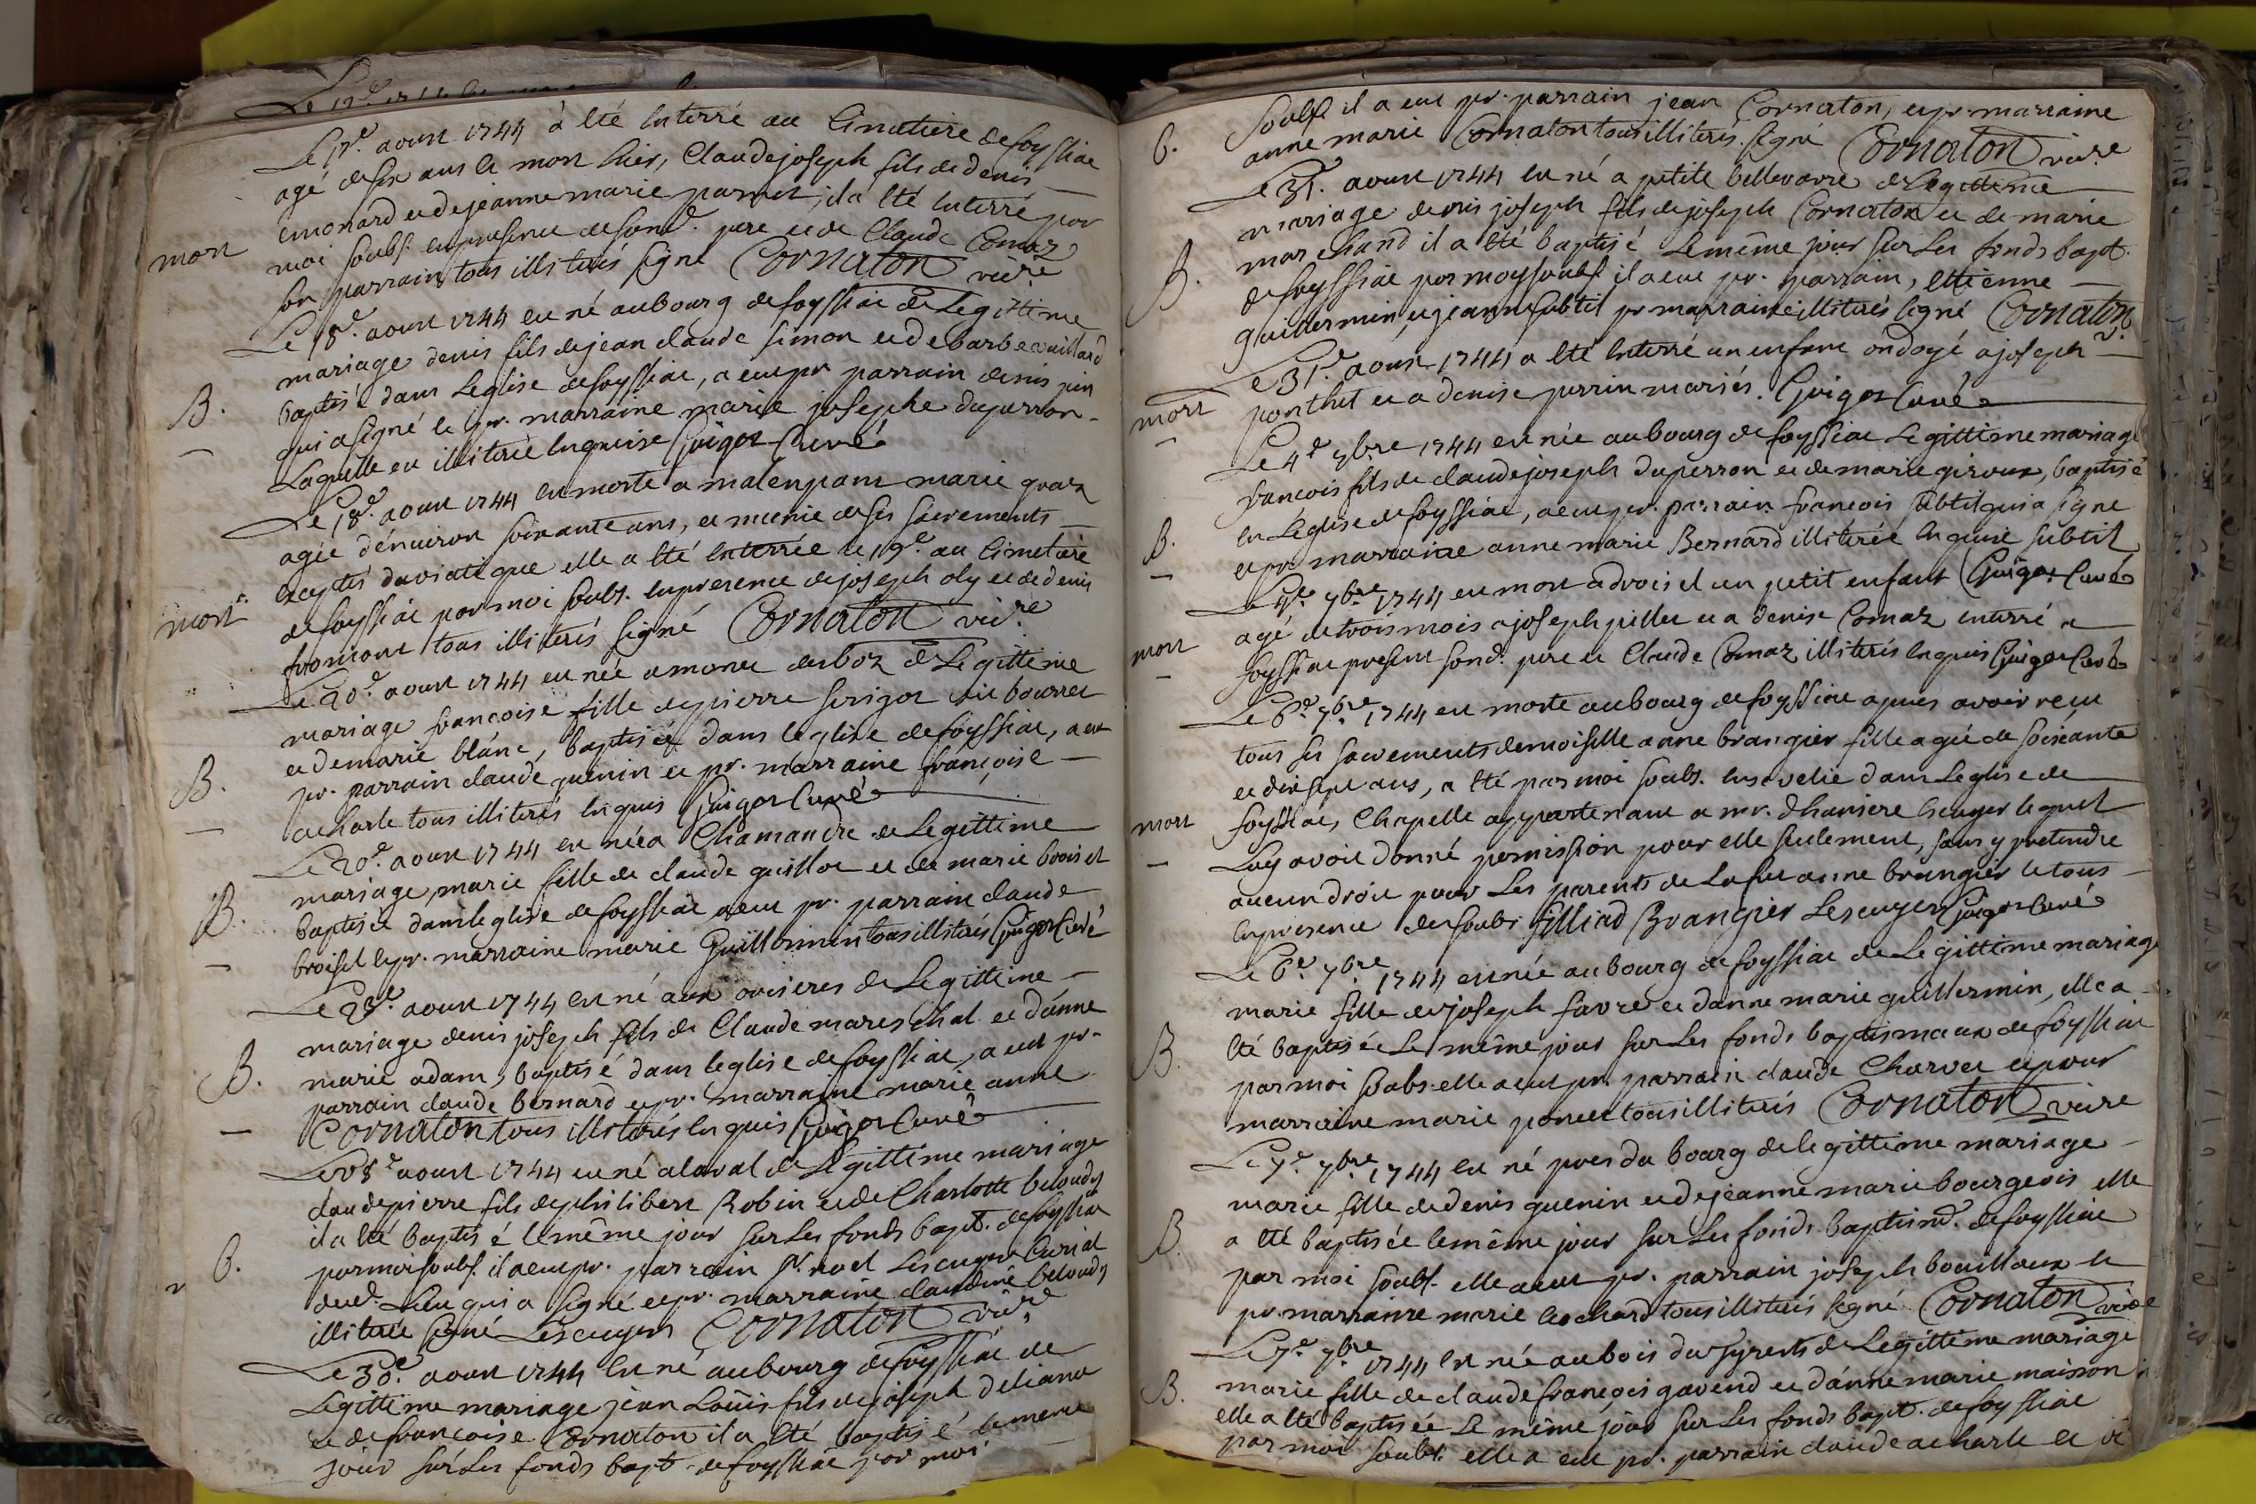 mort
Le 17e. aoust 1744 à été Enterré au Cimetiere de foyssiac
agé de six ans le mort hier, Claude joseph fils de denis
emonard et de jeanne marie parret, il a été Enterré par
moi soubs. en presence de son d. pere et de Claude Comaz
son parrain tous illiterés signé Cornaton vicre
B.
Le 18e. aoust 1744 est né au bourg de foyssiac de Legittime
mariage denis fils de jean claude simon et de barbe
baptisé dans Leglise de foyssiac, a eu pr parrain denis
qui a signé et pr. marraine marie josephe duperron
Laquelle est illiterée Enquise Guigot Curé
mort
Le 18e. aoust 1744 est morte a malenpant marie
agée d'environ soixante ans, et munie de ses sacrements
exceptés du viatique elle a été Enterrée le 19e. au Cimetiere
de foyssiac par moi soubs. en presence de joseph oly et de denis
fromont tous illiterés signé Cornaton vicre
B.
Le 20e. aoust 1744 est née a des boz de Legittime
mariage francoise fille de pierre
et de marie blanc, baptisée dans leglise de foyssiac, a eu
pr. parrain claude guenin et pr. marraine françoise
acharle tous illiterés Enquis Guigot Curé
B.
Le 20e. aoust 1744 est née a Chamandre de Legittime
mariage, marie fille de claude guillot et de marie broisil
baptisée dans leglise de foyssiac a eu pr. parrain claude
broisil et pr. marraine marie Guillermin tous illiterés Guigot Curé
B.
Le 28e. aoust 1744 est né aux de Legittime
mariage denis joseph fils de Claude mareschal et d'anne
marie adam, baptisé dans leglise de foyssiac, a eu pr.
parrain claude bernard et pr. marraine marie anne
Cornaton tous illiterés Enquis Guigot Curé
B.
Le 28e aoust 1744 est né a laval de Legittime mariage
claude pierre fils de philibert Robin et de Charlotte beloudy
il a été baptisé le même jour sur Les fonds bapt. de foyssiac
par moi soubs. il a eu pr. parrain Sr. noel Lescuyer Curial
dud. Lieu qui a signé et pr. marraine claudine beloudy
illiterée signé Lescuyer Cornaton vicre
Le 30e. aoust 1744 Est né au bourg de foyssiac de
Legittime mariage jean Loüis fils de joseph
et de francoise Cornaton il a été baptisé le meme
jour sur Les fonds bapt. de foyssiac par moi
B.
soubs. il a eu pr. parrain jean Cornaton, et pr. marraine
anne marie Cornaton tous illiterés signé Cornaton vicre
B.
Le 31e. aoust 1744 est né a petite bellevavre de Legittime
mariage denis joseph fils de joseph Cornaton et de marie
marchand il a été baptisé Le même jour sur Les fonds bapt.
de foyssiac par moy soubs. il a eu pr. parrain, Ettienne
guillermin, et jeanne subtil pr marraine illiterés signé Cornaton v.
mort
Le 31e. aoust 1744 a été Enterré un enfant ondoyé a joseph
ponthet et a denise perrin mariés. Guigot Curé
B.
Le 4e 7bre 1744 est née au bourg de foyssiac Legittime mariage
francois fils de claude joseph duperron et de marie giroux, baptisé
en Leglise de foyssiac, a eu pr. parrain francois subtil qui a signé
et pr marraine anne marie Bernard illiterée Enquise subtil
Guigot Curé
mort
Le 4e 7bre 1744 est mort a un petit enfant
agé de trois mois a joseph pillet et a denise Comaz enterré a
foyssiac present son d. pere et Claude Comaz illiterés Enquis Guigot Curé
mort
Le 6e. 7bre 1744 est morte au bourg de foyssiac apres avoir reçu
tous ses sacrements demoiselle anne brangier fille agée de soixante
et dix sept ans, a été par moi soubs. ensevelie dans Leglise de
foyssiac, Chapelle appartenant a mr. Escuyer lequel
Luy avoit donné permission pour elle seulement, sans y pretendre
aucun droit pour Les parents de La fut anne brangier le tous
en presence des soubs. filliad Brangier Lescuyer Guigot Curé
B.
Le 6e. 7bre 1744 est née au bourg de foyssiac de Legittime mariage
marie fille de joseph favre et d'anne marie guillermin, elle a
été baptisée Le même jour sur Les fonds baptismaux de foyssiac
par moi soubs. elle a eu pr. parrain claude Charvet et pour
marraine marie poncet tous illiterés Cornaton vicre
B.
Le 7e. 7bre 1744 Est né pres du bourg de legittime mariage
marie fille de denis guenin et de jeanne marie bourgeois elle
a été baptisée le même jour sur Les fonds baptism. de foyssiac
par moi soubs. elle a eu pr. parrain joseph bouilloux et
pr marraine marie bochard tous illiterés signé Cornaton vicre
B.
Le 7e. 7bre 1744 Est née au bois du de Legittime mariage
marie fille de claude françois gavend et d'anne marie maisson
elle a été baptisée Le même jour sur Les fonds bapt. de foyssiac
par moi soubs. elle a eu pr. parrain claude acharle et